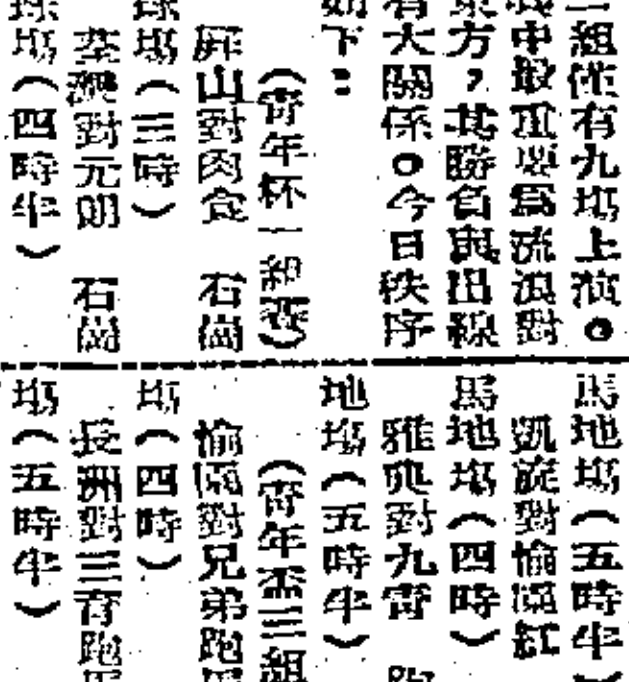 二組僅有九塲上演。
戰中最重要爲流浪對
東方，其勝負與出線
有大關係。今日秩序
如下：
（青年杯一組賽）
屏山對肉食　石崗
球塲（三時）
對元朗　石崗
球塲（四時半）
馬地塲（五時半）
凱旋對愉園紅
馬地塲（四時）
雅典對九育　跑
地塲（五時半）
（青年盃三組
愉園對兄弟跑馬
塲（四時）
長洲對三育跑馬
塲（五時半）